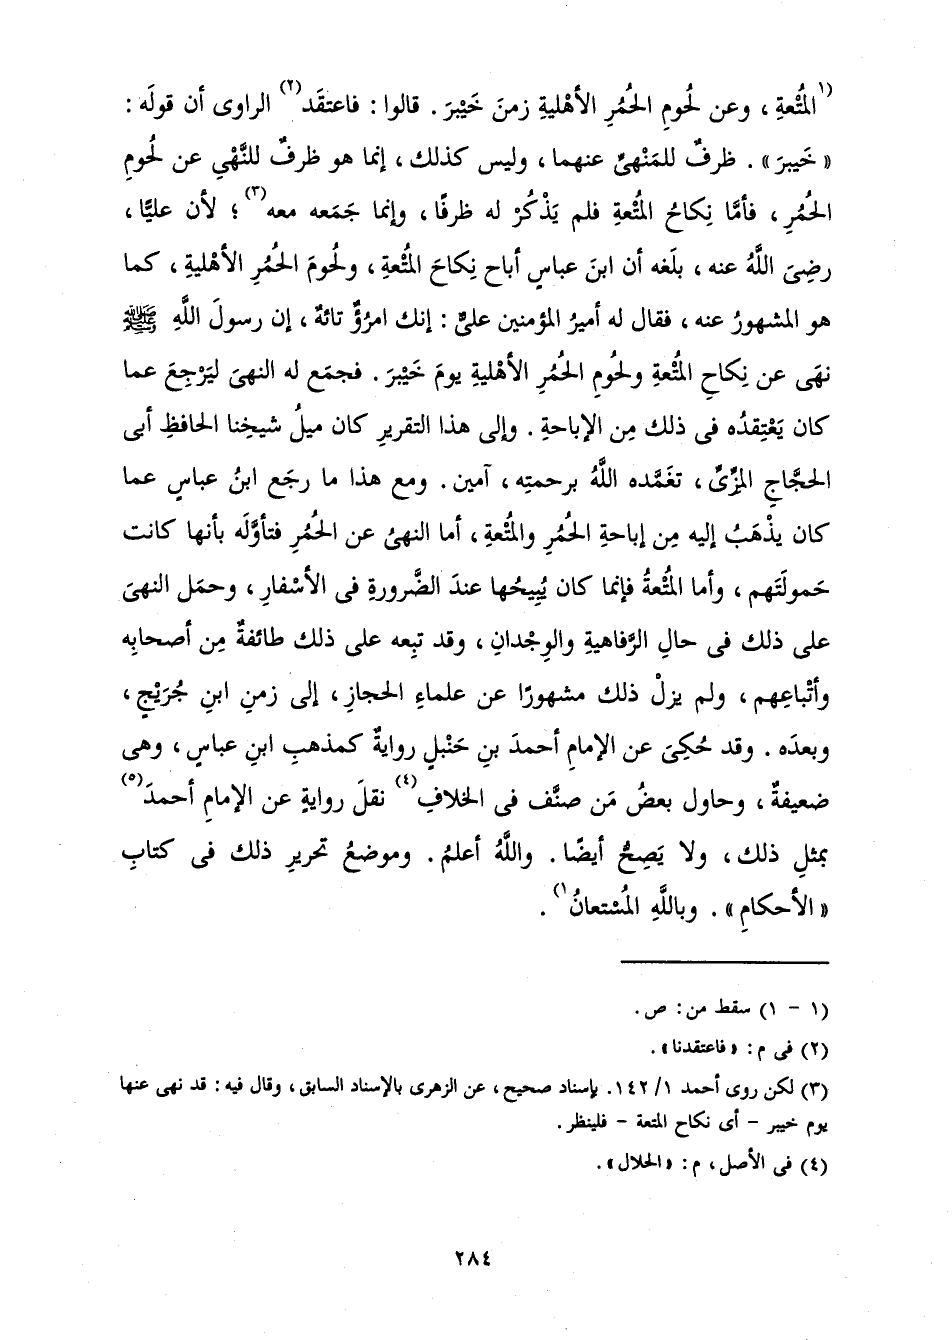 (١المُتْعةِ ، وعن لُحومِ الحُمُرِ الأهْليةِ زمنَ خَيْبَرَ . قالوا : فاعتقَد(٢) الراوى أن قولَه :
« خَيبرَ » . ظرفٌ للمَنْهىِّ عنهما ، وليس كذلك ، إنما هو ظرفٌ للنَّهْىِ عن لُحومِ
الحُمُرِ ، فأمَّا نِكاحُ المُتْعةِ فلم يَذْكُرْ له ظرفًا ، وإنما جَمَعه معه(٣) ؛ لأن عليًّا ،
رضِىَ اللَّهُ عنه ، بلَغه أن ابنَ عباسٍ أباح نِكاحَ المُتْعةِ ، ولُحومَ الحُمُرِ الأهْليةِ ، كما
هو المشهورُ عنه ، فقال له أميرُ المؤمنين علىٌّ : إنك امرُؤٌ تائهٌ ، إن رسولَ اللَّهِ ﷺ
نهَى عن نِكاحِ المُتْعةِ ولُحومِ الحُمُرِ الأهْليةِ يومَ خَيْبَرَ . فجمَع له النهىَ ليَرْجِعَ عما
كان يَعْتِقدُه فى ذلك مِن الإباحةِ . وإلى هذا التقريرِ كان ميلُ شيخِنا الحافظِ أبى
الحجَّاجِ المِزِّىِّ ، تغَمَّده اللَّهُ برحمتِه ، آمين . ومع هذا ما رجَع ابنُ عباسٍ عما
كان يذْهَبُ إليه مِن إباحةِ الحُمُرِ والمُتْعةِ ، أما النهىُ عن الحُمُرِ فتأوَّلَه بأنها كانت
حَمولَتَهم ، وأما المُتْعةُ فإنما كان يُبِيحُها عندَ الضَّرورةِ فى الأسْفارِ ، وحمَل النهىَ
على ذلك فى حالِ الرَّفاهيةِ والوِجْدانِ ، وقد تبِعه على ذلك طائفةٌ مِن أصحابِه
وأتْباعِهم ، ولم يزلْ ذلك مشهورًا عن علماءِ الحجازِ ، إلى زمنِ ابنِ جُرَيْجٍ ،
وبعدَه . وقد حُكِىَ عن الإمامِ أحمدَ بنِ حَنْبلٍ روايةٌ كمذهبِ ابنِ عباسٍ ، وهى
ضعيفةٌ ، وحاول بعضُ مَن صنَّف فى الخلافِ(٤) نقلَ روايةٍ عن الإمامِ أحمدَ(٥)
بمثلِ ذلك ، ولا يَصِحُّ أيضًا . واللَّهُ أعلمُ . وموضعُ تحريرِ ذلك فى كتابِ
« الأحكامِ » . وباللَّهِ المُسْتعانُ١) .
(١ - ١) سقط من : ص .
(٢) فى م : « فاعتقدنا » .
(٣) لكن روى أحمد ١/ ١٤٢. بإسناد صحيح ، عن الزهرى بالإسناد السابق ، وقال فيه : قد نهى عنها
يوم خيبر - أى نكاح المتعة - فلينظر .
(٤) فى الأصل ، م : « الحلال » .
٢٨٤